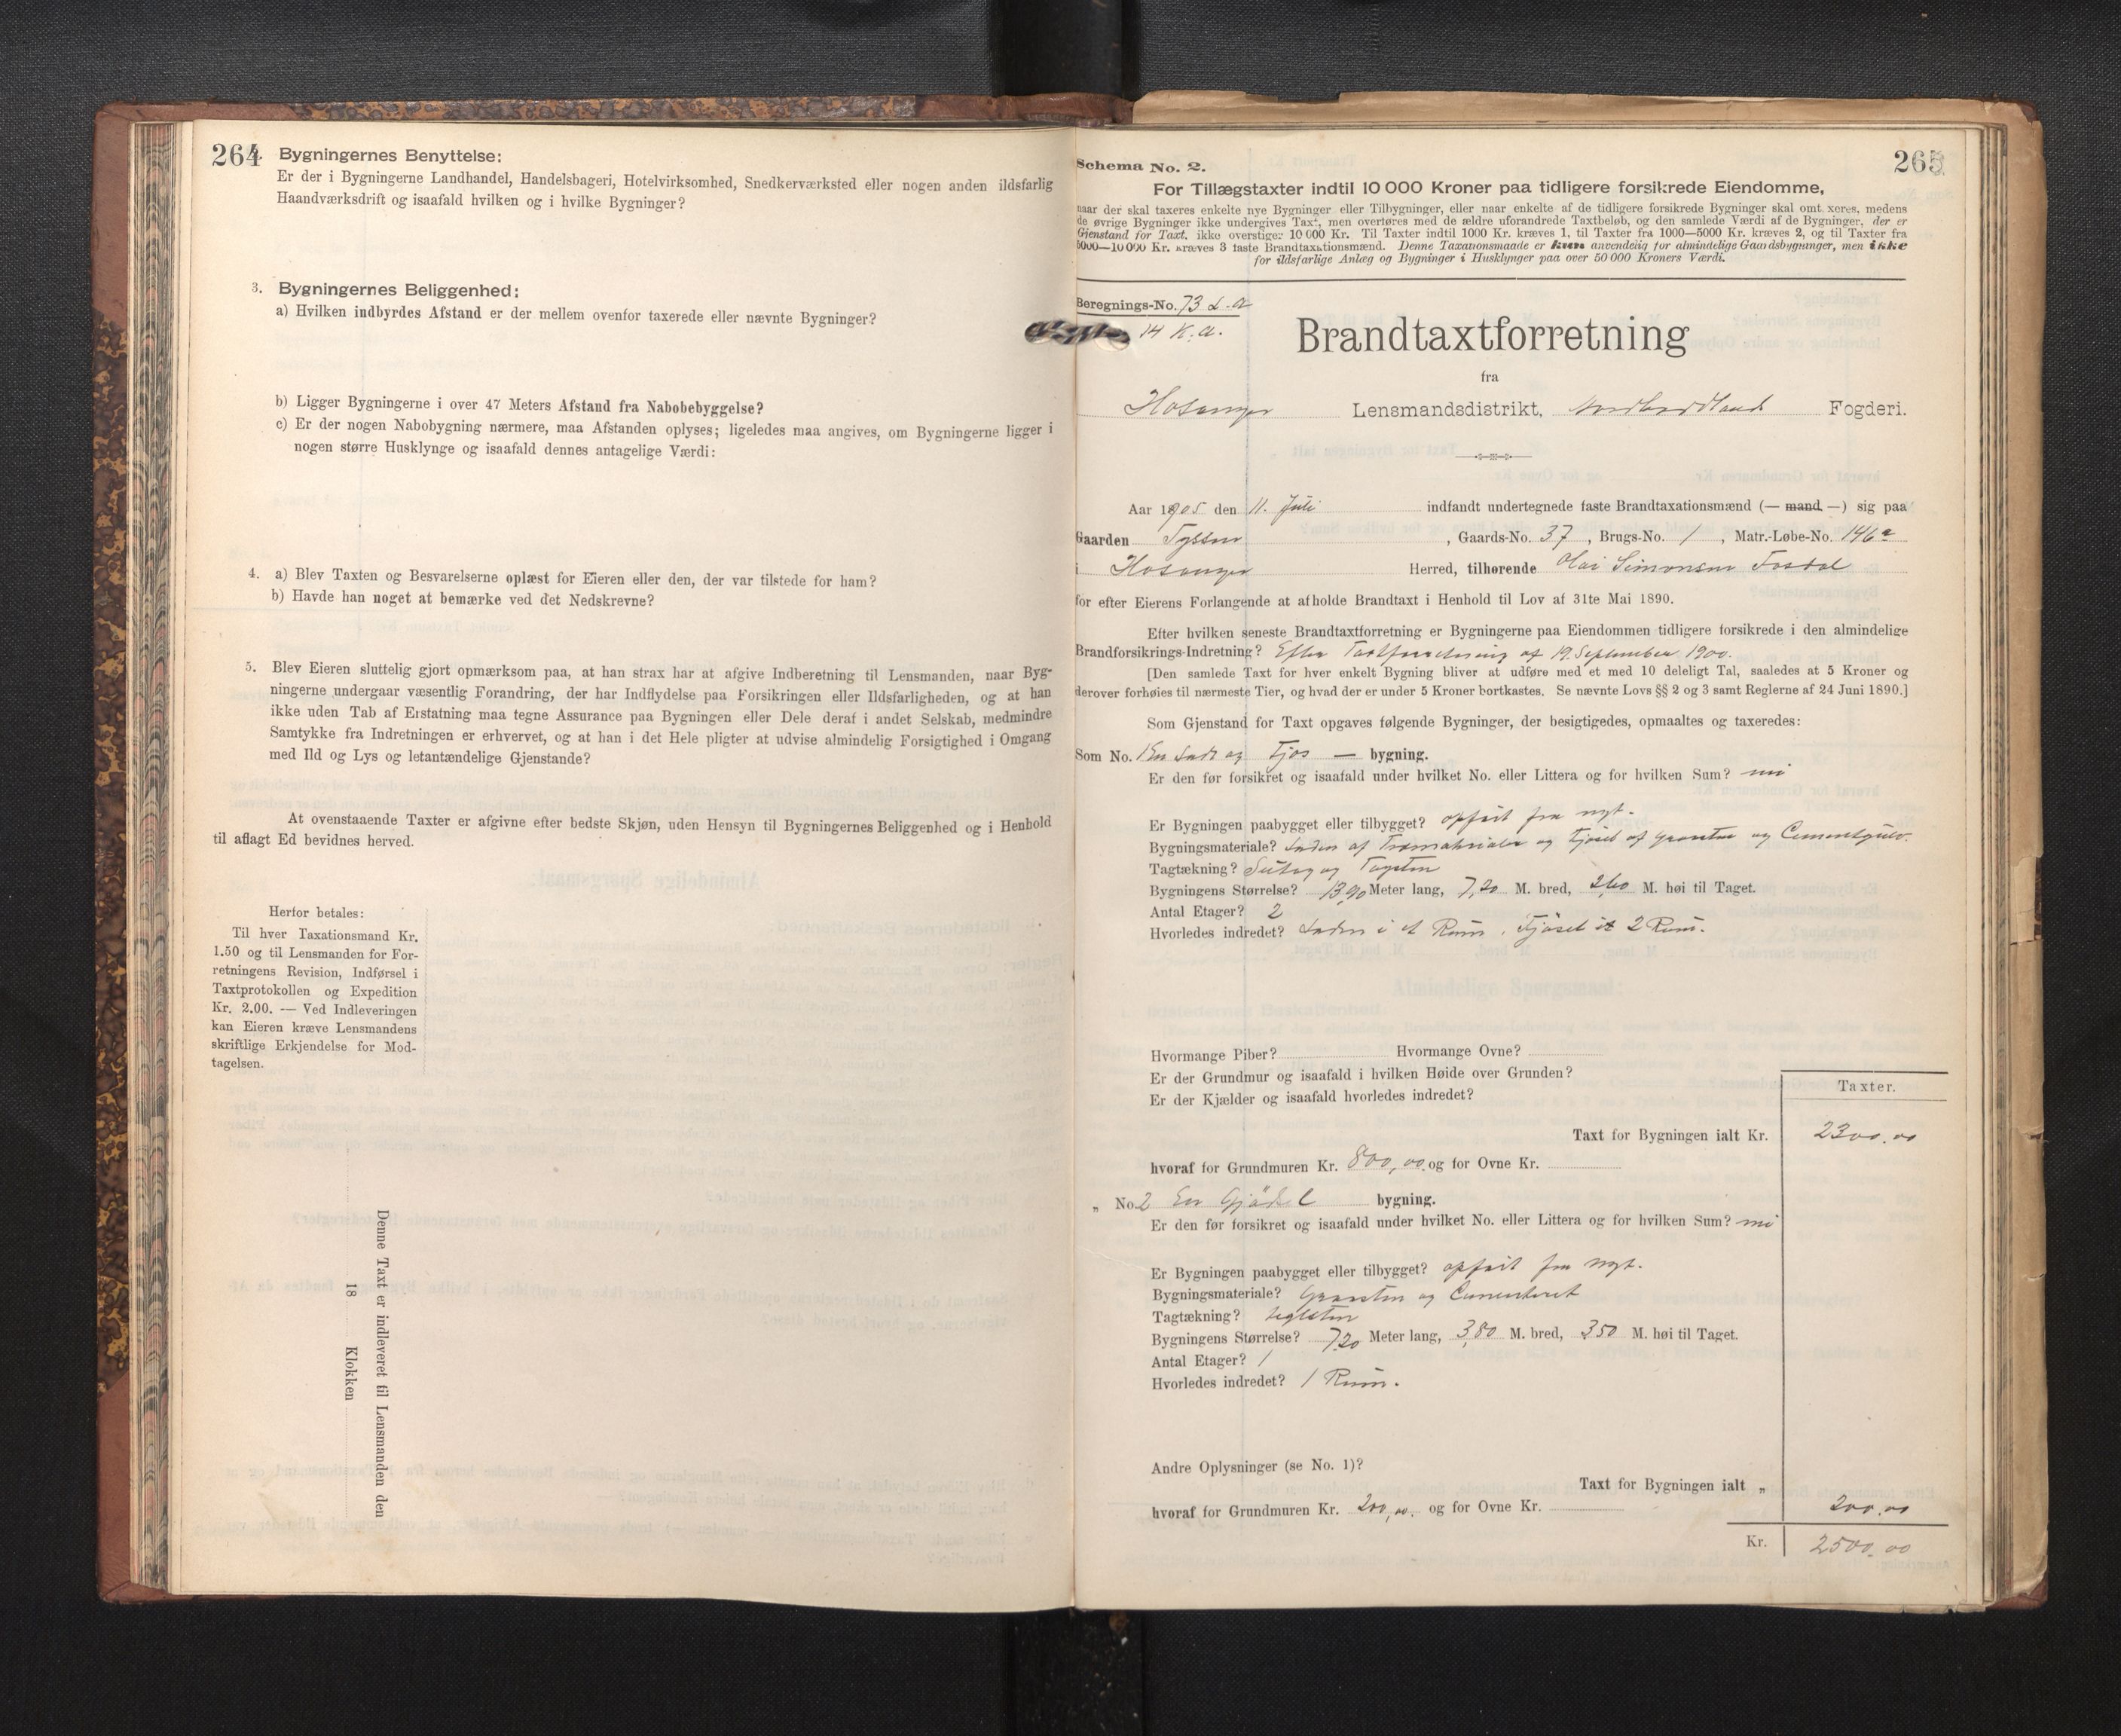 264
Bygningernes Benyttelse:
Er der i Bygningerne Landhandel, Handelsbageri, Hotelvirksomhed, Snedkerværksted eller nogen anden ildsfarlig
Haandværksdrift og isaafald hvilken og i hvilke Bygninger?
3. Bygningernes Beliggenhed:
a) Hvilken indbyrdes Afstand er der mellem ovenfor taxerede eller nævnte Bygninger?
b) Ligger Bygningerne i over 47 Meters Afstand fra Nabobebyggelse?
c) Er der nogen Nabobygning nærmere, maa Afstanden oplyses; ligeledes maa angives, om Bygningerne ligger i
nogen større Husklynge og isaafald dennes antagelige Værdi:
4. a) Blev Taxten og Besvarelserne oplæst for Eieren eller den, der var tilstede for ham?
b) Havde han noget at bemærke ved det Nedskrevne?
5. Blev Eieren sluttelig gjort opmærksom paa, at han strax har at afgive Indberetning til Lensmanden, naar Byg-
ningerne undergaar væsentlig Forandring, der har Indflydelse paa Forsikringen eller Ildsfarligheden, og at han
ikke uden Tab af Erstatning maa tegne Assurance paa Bygningen eller Dele deraf i andet Selskab, medmindre
Samtykke fra Indretningen er erhvervet, og at han i det Hele pligter at udvise almindelig Forsigtighed i Omgang
med Ild og Lys og letantændelige Gjenstande?
At ovenstaaende Taxter er afgivne efter bedste Skjøn, uden Hensyn til Bygningernes Beliggenhed og i Henhold
til aflagt Ed bevidnes herved.
Herfor betales:
Til hver Taxationsmand Kr.
1.50 og til Lensmanden for For-
retningens Revision, Indførsel i
Taxtprotokollen og Expedition
Kr. 2.00. — Ved Indleveringen
kan Eieren kræve Lensmandens
skriftlige Erkjendelse for Mod-
tagelsen.
Denne Taxt er indleveret til Lensmanden den
18 Klokken
265
Schema No. 2.
For Tillægstaxter indtil 10 000 Kroner paa tidligere forsikrede Eiendomme,
naar der skal taxeres enkelte nye Bygninger eller Tilbygninger, eller naar enkelte af de tidligere forsikrede Bygninger skal omtaxeres, medens
de øvrige Bygninger ikke undergives Taxt, men overføres med de ældre uforandrede Taxtbeløb, og den samlede Værdi af de Bygninger, der er
Gjenstand for Taxt, ikke overstiger 10 000 Kr. Til Taxter indtil 1000 Kr. kræves 1, til Taxter fra 1000—5000 Kr. kræves 2, og til Taxter fra
5000—10 000 Kr. kræves 3 faste Brandtaxationsmænd. Denne Taxationsmaade er kun anvendelig for almindelige Gaardsbygninger, men ikke
for ildsfarlige Anlæg og Bygninger i Husklynger paa over 50 000 Kroners Værdi.
Beregnings-No. 73 L.a
14 K.a.
Brandtaxtforretning
fra
Hosanger Lensmandsdistrikt, Nordhordland Fogderi.
Aar 1905 den 11. Juli indfandt undertegnede faste Brandtaxationsmænd (— mand —) sig paa
Gaarden Tyssen, Gaards-No. 37, Brugs-No. 1, Matr.-Løbe-No. 146a
i Hosanger Herred, tilhørende Simonsen
for efter Eierens Forlangende at afholde Brandtaxt i Henhold til Lov af 31te Mai 1890.
Efter hvilken seneste Brandtaxtforretning er Bygningerne paa Eiendommen tidligere forsikrede i den almindelige
Brandforsikrings-Indretning? Efter Taxtforretning af 19. September 1900.
[Den samlede Taxt for hver enkelt Bygning bliver at udføre med et med 10 deleligt Tal, saaledes at 5 Kroner og
derover forhøies til nærmeste Tier, og hvad der er under 5 Kroner bortkastes. Se nævnte Lovs §§ 2 og 3 samt Reglerne af 24 Juni 1890.]
Som Gjenstand for Taxt opgaves følgende Bygninger, der besigtigedes, opmaaltes og taxeredes:
Som No. 1 En Lade og Fjøs — bygning.
Er den før forsikret og isaafald under hvilket No. eller Littera og for hvilken Sum? nei
Er Bygningen paabygget eller tilbygget? opført fra nyt.
Bygningsmateriale? Laden af Træmaterialer og Fjøset af Graasten og Cementgulv.
Tagtækning? og Tagsten
Bygningens Størrelse? 13,90 Meter lang, 7,20 M. bred, 2,60 M. høi til Taget.
Antal Etager? 2
Hvorledes indredet? Laden i et Rum, Fjøset i 2 Rum.
Hvormange Piber? Hvormange Ovne?
Er der Grundmur og isaafald i hvilken Høide over Grunden?
Er der Kjælder og isaafald hvorledes indredet?
Taxter.
Taxt for Bygningen ialt Kr. 2300.00
hvoraf for Grundmuren Kr. 800,00 og for Ovne Kr.
„ No. 2 En Gjødsel bygning.
Er den før forsikret og isaafald under hvilket No. eller Littera og for hvilken Sum? nei
Er Bygningen paabygget eller tilbygget? opført fra nyt.
Bygningsmateriale? Graasten og Cementeret
Tagtækning? Teglsten
Bygningens Størrelse? 7,20 Meter lang, 3,80 M. bred, 3,50 M. høi til Taget.
Antal Etager? 1
Hvorledes indredet? 1 Rum.
Andre Oplysninger (se No. 1)?
Taxt for Bygningen ialt „ 200.00
hvoraf for Grundmuren Kr. 200,00. og for Ovne Kr.
Kr. 2500.00